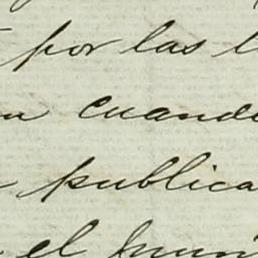 por las l
cuando
publica
el